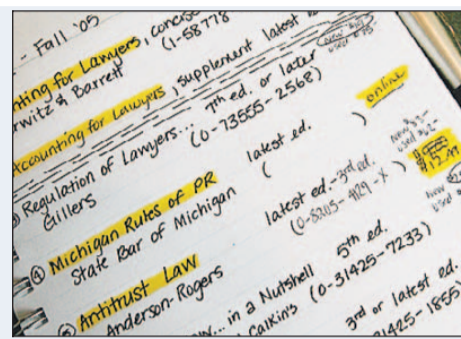 - Fall '05
nting for Lawyers, concise
(1-58778
rwitz & Barrett
Accounting for Lawyers, supplement latest
Regulation of Lawyers... 7th ed. or later
Gillers (0-73555-2568)
④ Michigan Rules of PR latest ed. ( ) online
State Bar of Michigan
⑤ Antitrust Law latest ed.-3rd ed.
Anderson-Rogers (0-8205-4129-X)
... in a Nutshell 5th ed.
Calkins (0-31425-7233)
3rd or latest ed.
31425-1855)